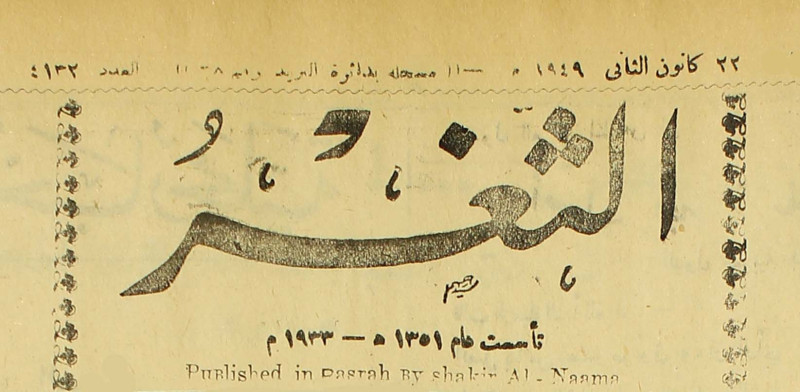 ٢٢ كانون الثاني ١٩٤٩ م — مسجلة بدائرة البريد العدد ٤١٣٢
الثغر
تأسست عام ١٣٥١ ه — ١٩٣٣ م
Published in Basrah By shakir Al - Naama